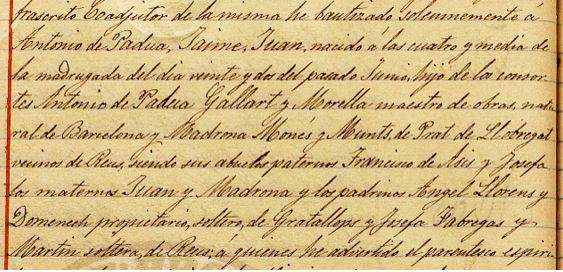 frascrito Coadjutor de la misma he bautizado solemnemente á
Antonio de Padua, Jaime, Juan, nacido á las cuatro y media de
la madrugada del dia veinte y dos del pasado Junio, hijo de los consor-
tes Antonio de Padua Gallart y Morella maestro de obras, natu
ral de Barcelona y Madrona Monés y Munts, de Prat de Llobregat
vecinos de Reus, siendo sus abuelos paternos Francisco de Asis y Josefa
los maternos Juan y Madrona y los padrinos Angel Llorens y
Domenech propietario, soltero, de Gratallops y Josefa Fabregas y
Martin soltera, de Reus; á quienes he advertido el parentesco espiri